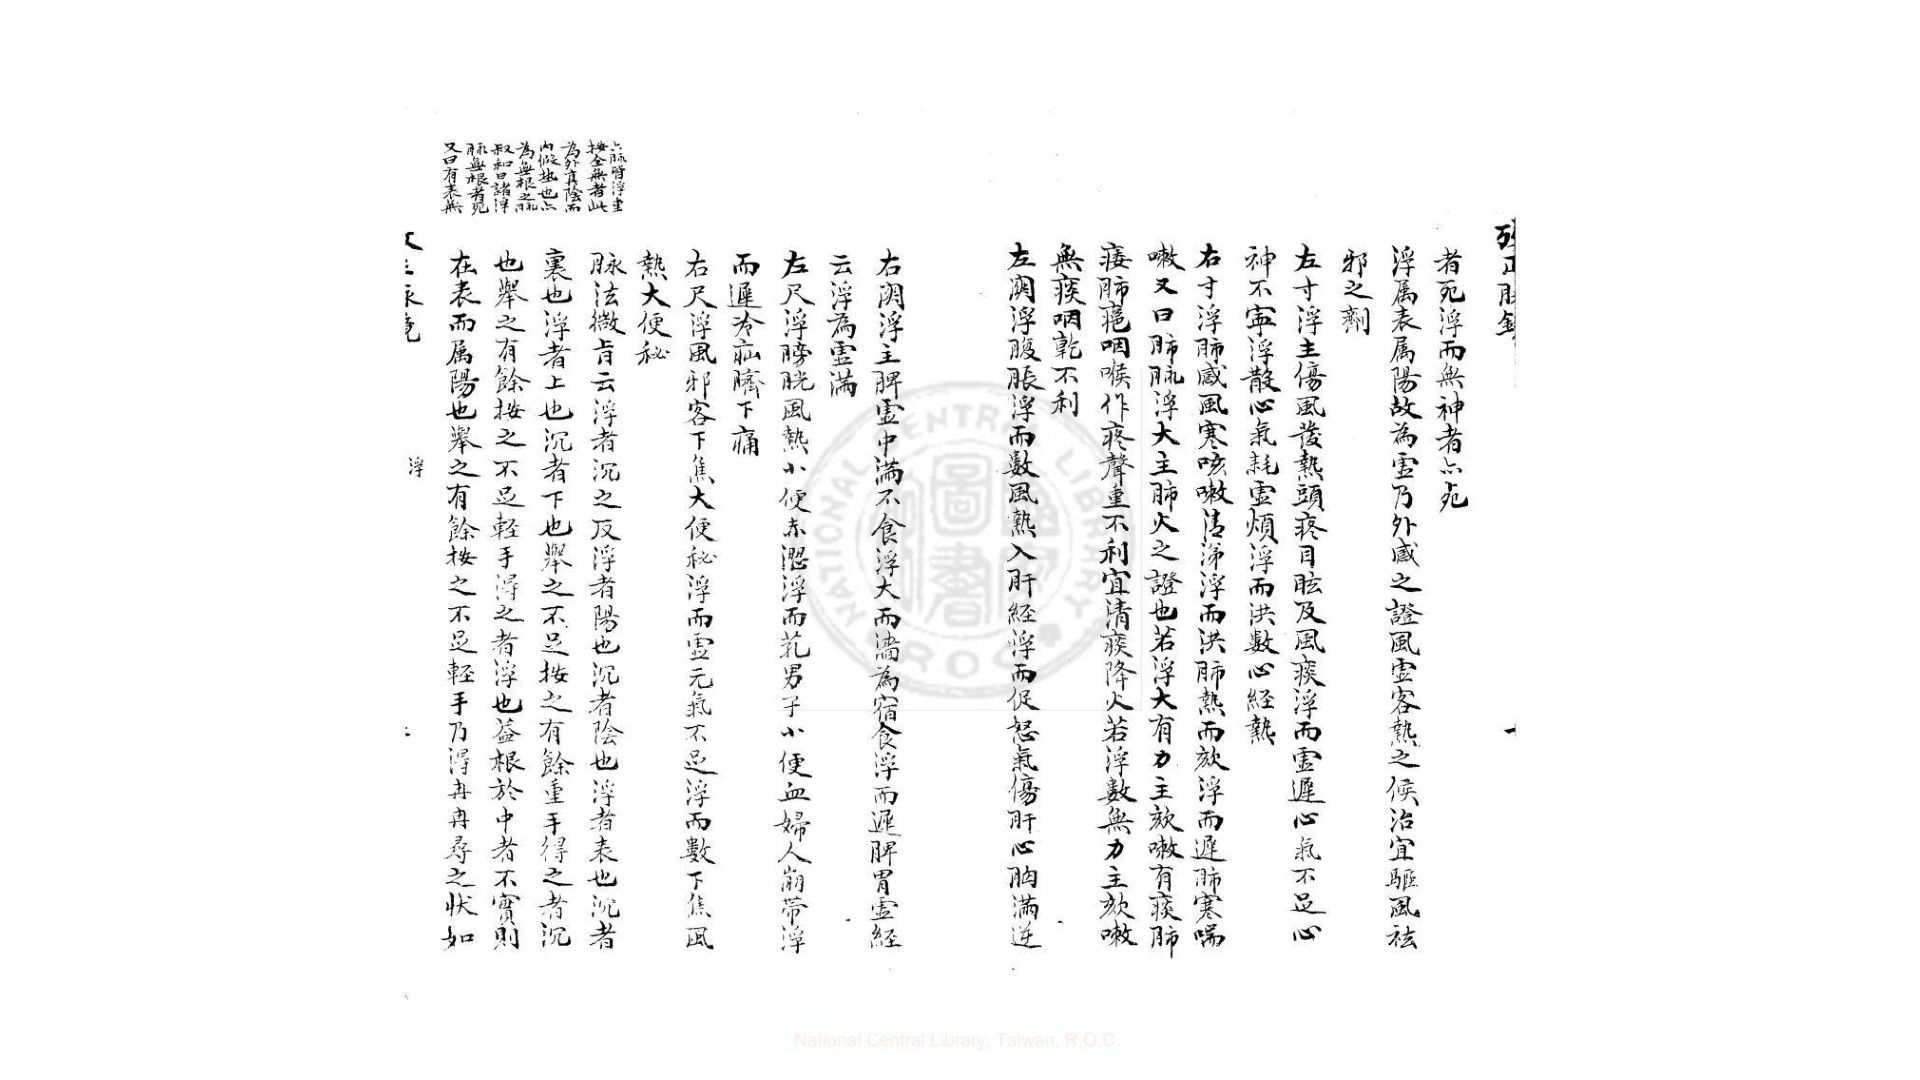 者死浮而無神者亦死
浮属表属陽故為虚乃外感之證風虚客熱之候治宜驅風祛
邪之劑
左寸浮主傷風發熱頭疼目眩及風痰浮而虚遲心氣不足心
神不寧浮散心氣耗虚煩浮而洪數心經熱
右寸浮肺感風寒咳嗽清涕浮而洪肺熱而欬浮而遲肺寒喘
嗽又曰肺脉浮大主肺火之證也若浮大有力主欬嗽有痰肺
痿肺癰咽喉作疼聲重不利宜清痰降火若浮數無力主欬嗽
無痰咽乾不利
左関浮腹脹浮而數風熱入肝経浮而促怒氣傷肝心胸滿逆
右関浮主脾虚中滿不食浮大而濇為宿食浮而遲脾胃虚経
云浮為虚滿
左尺浮膀胱風熱小便赤澀浮而芤男子小便血婦人崩帶浮
而遲冷疝臍下痛
右尺浮風邪客下焦大便秘浮而虚元氣不足浮而數下焦風
熱大便秘
脉法微旨云浮者沉之反浮者陽也沉者陰也浮者表也沉者
裏也浮者上也沉者下也舉之不足按之有餘重手得之者沉
也舉之有餘按之不足軽手得之者浮也益根於中者不實則
在表而属陽也舉之有餘按之不足軽手乃得冉冉尋之状如
六脉皆浮虚
按全無者此
為外真陰而
內假熱也亦
為無根之脉
叔和曰諸浮
脉無根者死
又曰有表無
浮
National Central Library, Taiwan, R.O.C.
NATIONAL CENTRAL LIBRARY R.O.C.